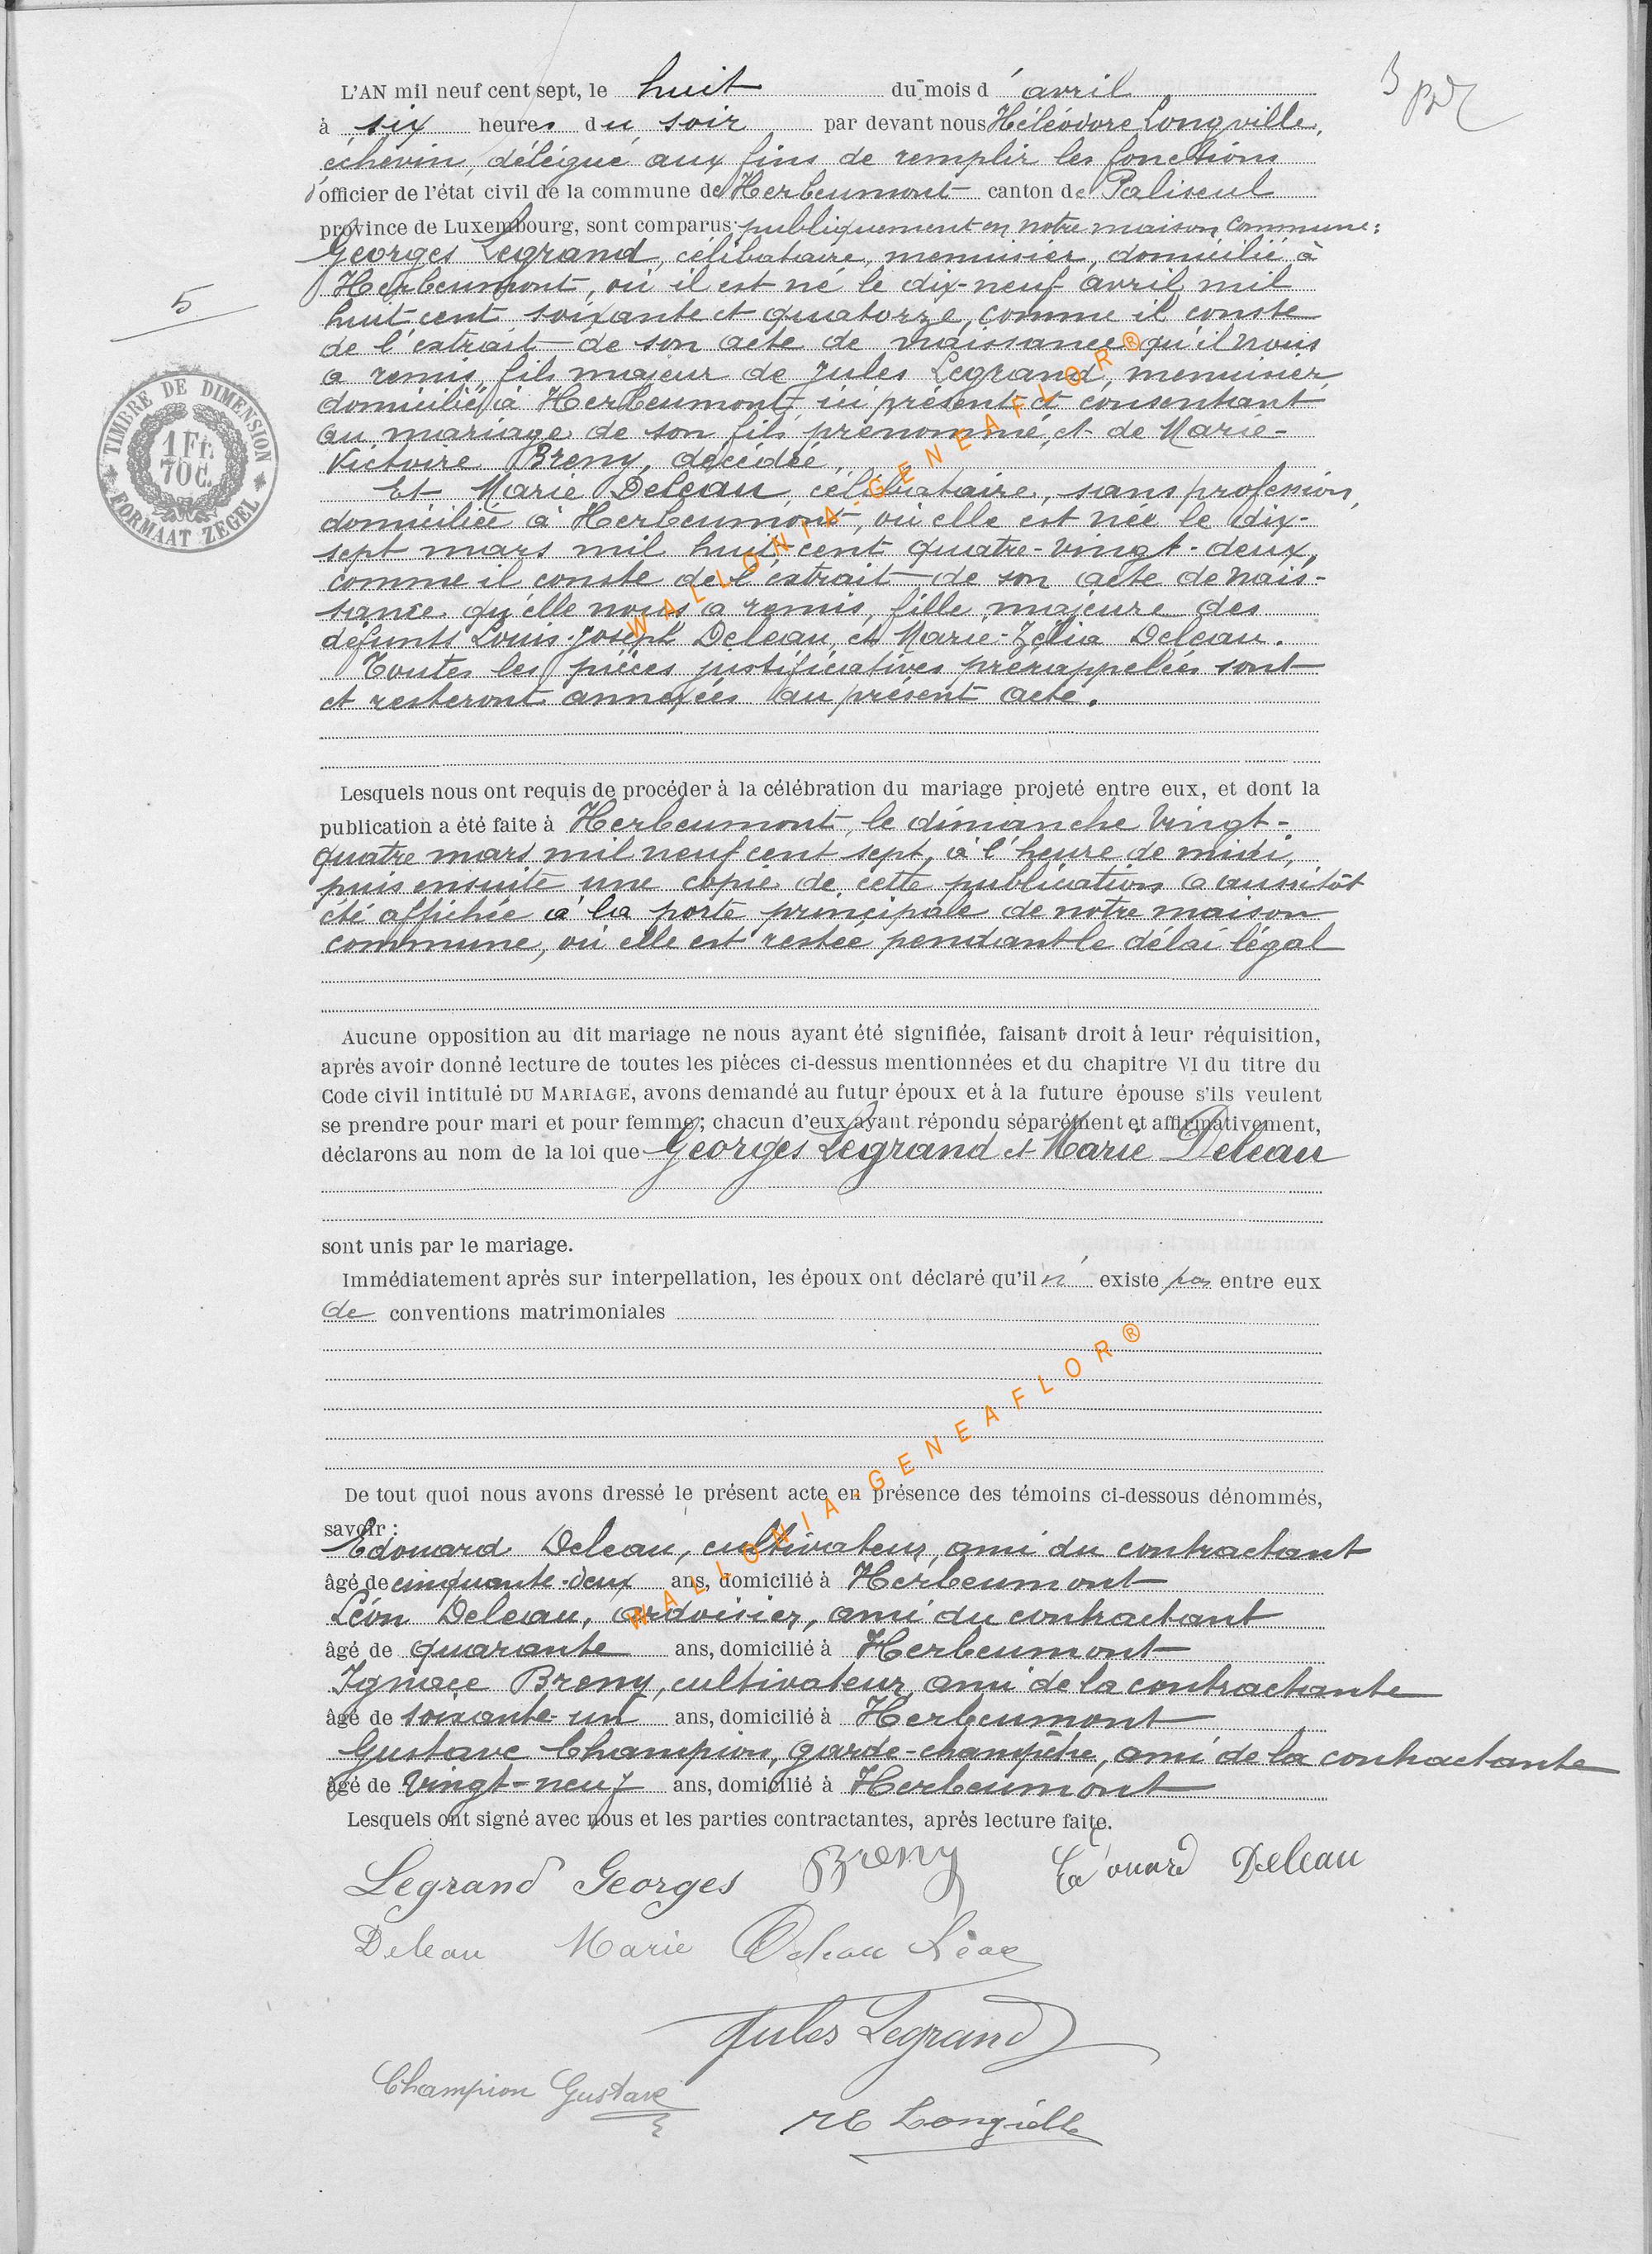 L'AN mil neuf cent sept, le huit du mois d' avril
à six heures du soir par devant nous Héléodore Longville,
échevin, délégué aux fins de remplir les fonctions
d'officier de l'état civil de la commune de Herbeumont canton de Paliseul
province de Luxembourg, sont comparus publiquement en notre maison commune :
Georges Legrand, célibataire, menuisier, domicilié à
Herbeumont, où il est né le dix-neuf avril mil
huit cent soixante et quatorze, comme il conste
de l'extrait de son acte de naissance qu'il nous
a remis, fils majeur de Jules Legrand, menuisier,
domicilié à Herbeumont, ici présent et consentant
au mariage de son fils prénommé, et de Marie-
Victoire Breny, décédée,
Et Marie Deleau, célibataire, sans profession,
domiciliée à Herbeumont, où elle est née le dix-
sept mars mil huit cent quatre-vingt-deux,
comme il conste de l'extrait de son acte de nais-
sance qu'elle nous a remis, fille majeure des
défunts Louis-Joseph Deleau, et Marie-Zélia Deleau.
Toutes les pièces justificatives prérappelées sont
et resteront annexées au présent acte.
Lesquels nous ont requis de procéder à la célébration du mariage projeté entre eux, et dont la
publication a été faite à Herbeumont, le dimanche vingt-
quatre mars mil neuf cent sept, à l'heure de midi,
puis ensuite une copie de cette publication a aussitôt
été affichée à la porte principale de notre maison
commune, où elle est restée pendant le délai légal
Aucune opposition au dit mariage ne nous ayant été signifiée, faisant droit à leur réquisition,
après avoir donné lecture de toutes les pièces ci-dessus mentionnées et du chapitre VI du titre du
Code civil intitulé DU MARIAGE, avons demandé au futur époux et à la future épouse s'ils veulent
se prendre pour mari et pour femme; chacun d'eux ayant répondu séparément et affirmativement,
déclarons au nom de la loi que Georges Legrand et Marie Deleau
sont unis par le mariage.
Immédiatement après sur interpellation, les époux ont déclaré qu'il n' existe pas entre eux
de conventions matrimoniales
De tout quoi nous avons dressé le présent acte en présence des témoins ci-dessous dénommés,
savoir :
Edouard Deleau, cultivateur, ami du contractant
âgé de cinquante-deux ans, domicilié à Herbeumont
Léon Deleau, ardoisier, ami du contractant
âgé de quarante ans, domicilié à Herbeumont
Ignace Breny, cultivateur, ami de la contractante
âgé de soixante-un ans, domicilié à Herbeumont
Gustave Champion, garde-champêtre, ami de la contractante
âgé de vingt-neuf ans, domicilié à Herbeumont
Lesquels ont signé avec nous et les parties contractantes, après lecture faite.
Legrand Georges Breny Edouard Deleau
Deleau Marie Deleau Léon
Jules Legrand
Champion Gustave
He Longville
5
TIMBRE DE DIMENSION
1 Fr.
70 C.
FORMAAT ZEGEL
WALLONIA-GENEAFLOR®
WALLONIA-GENEAFLOR®